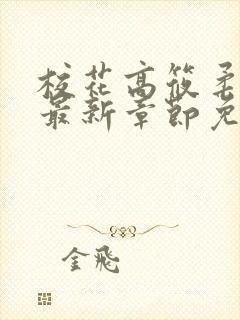 校花高筱柔
最新章节免
金飛